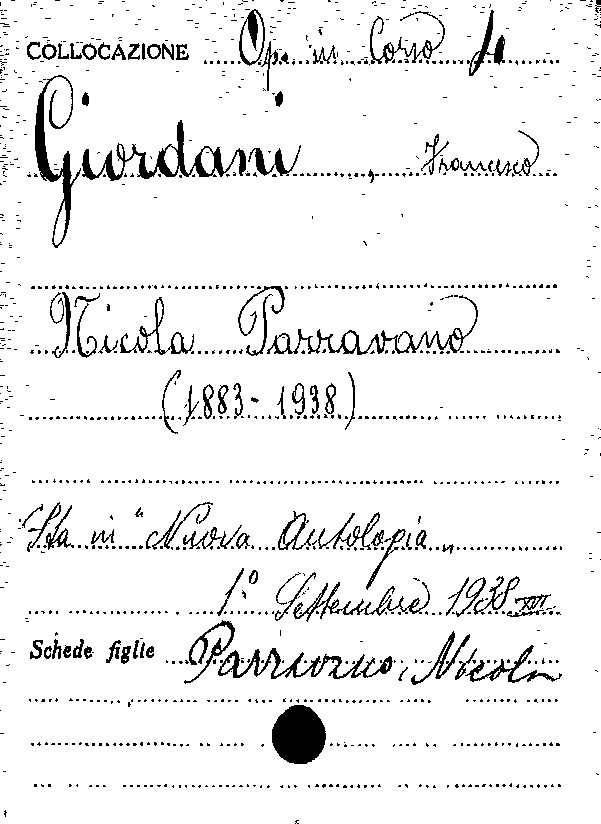 COLLOCAZIONE Op. in Corso
Giordani, Francesco
Nicola Parravano
(1883-1938)
Sta in "Nuova Antologia"
1.° Settembre 1938 XVI.
Schede figlie Parravano, Nicola